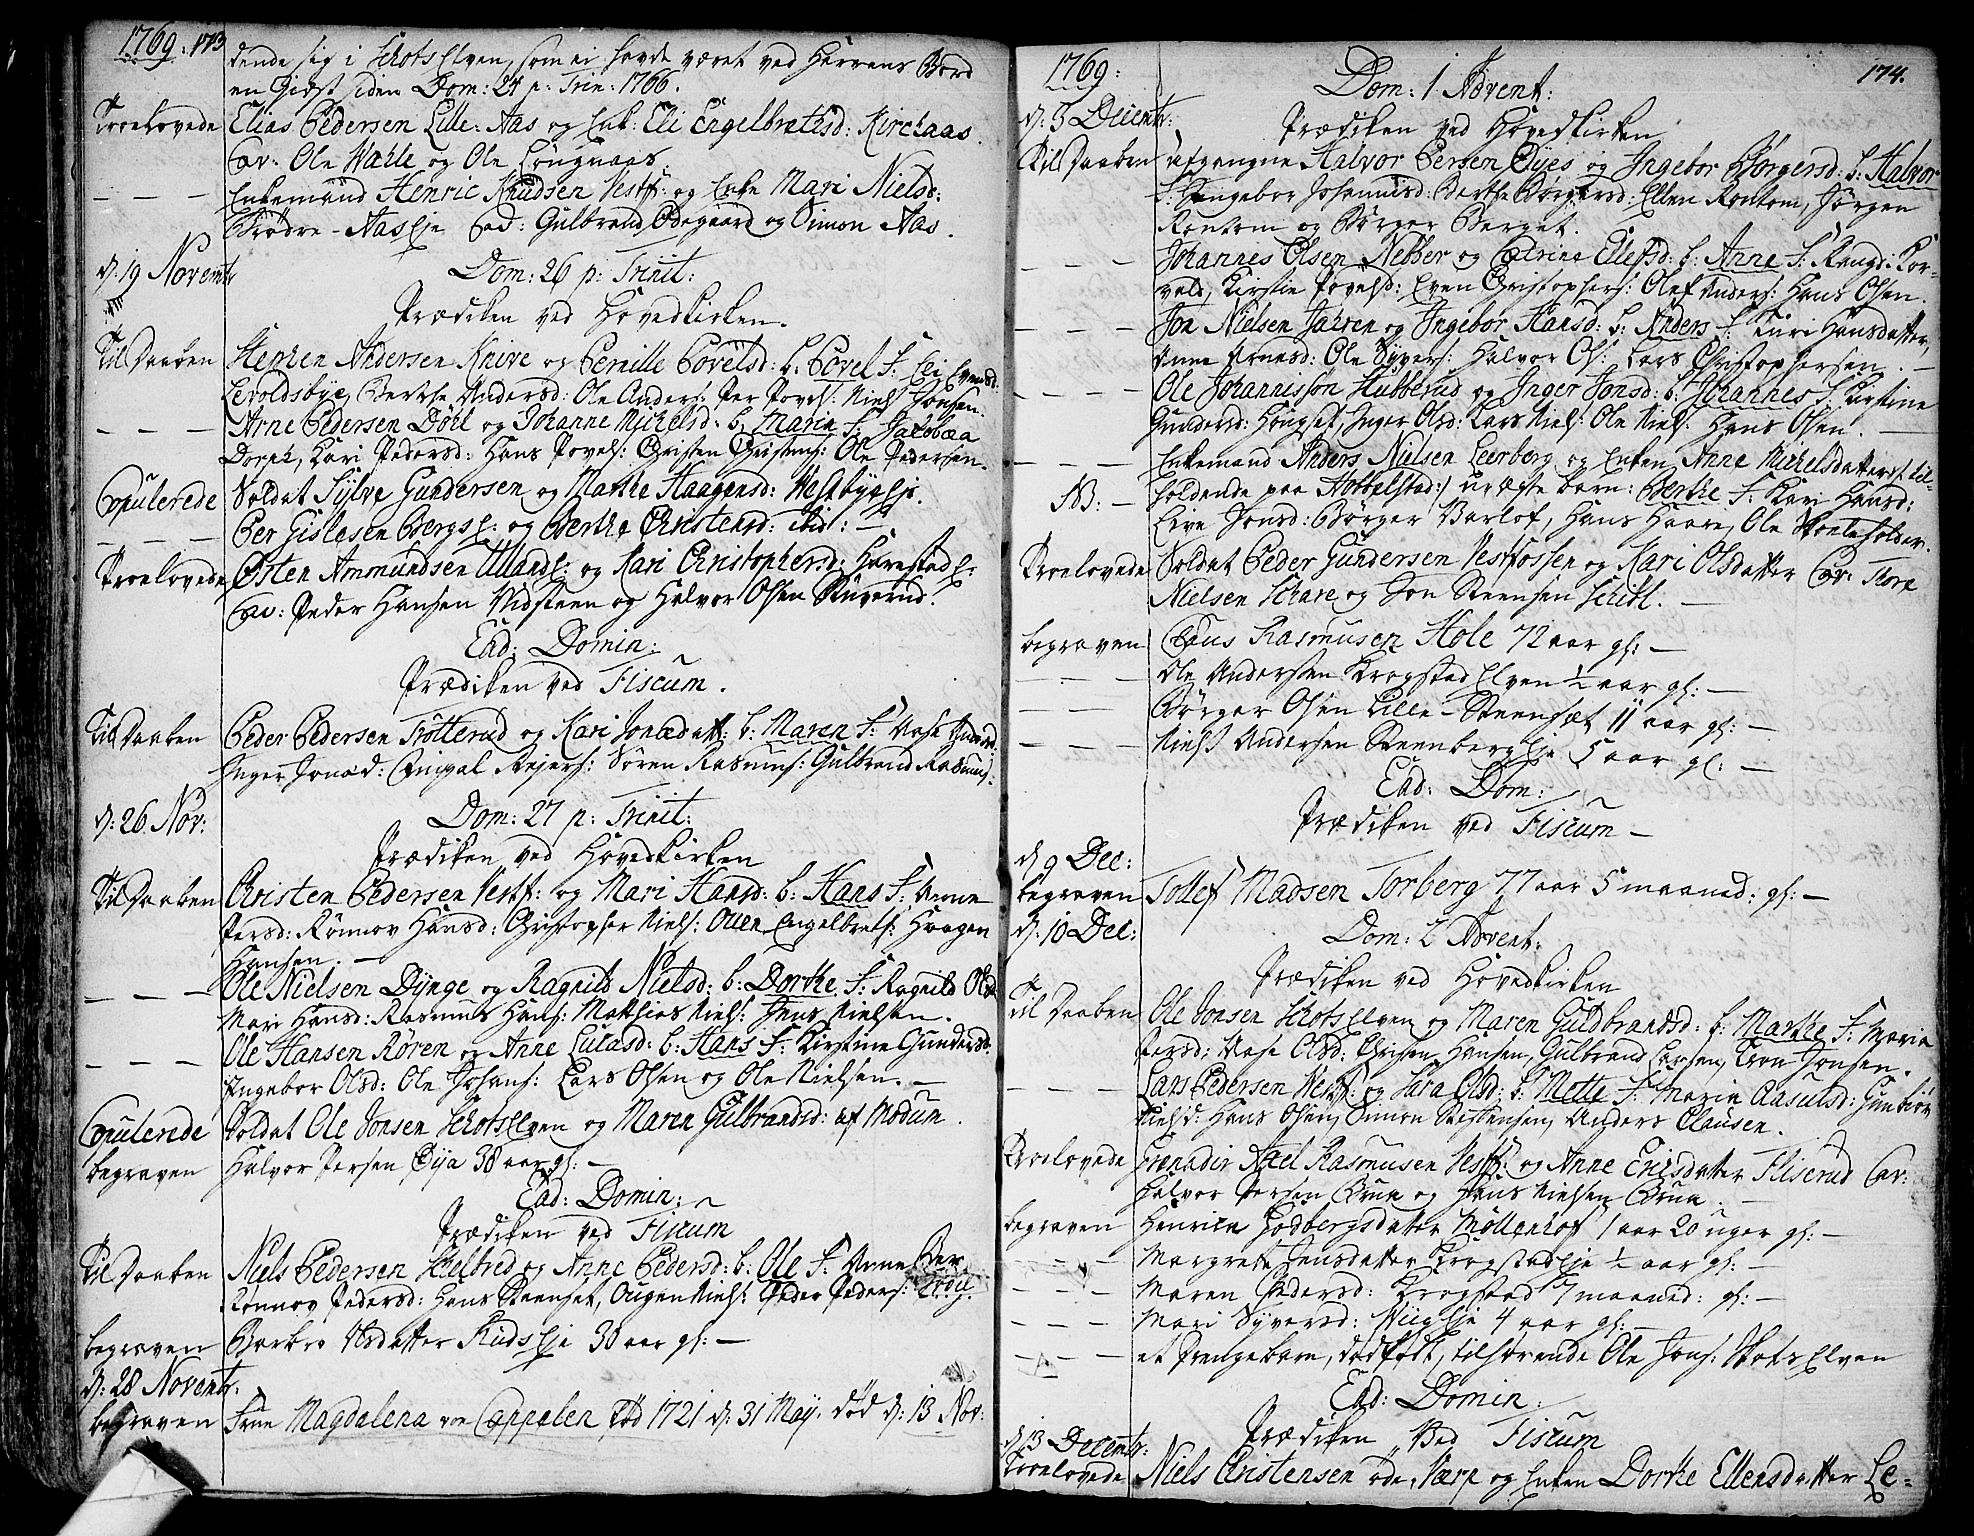 1769. 173
dende sig i SchotsElven, som ei havde været ved Herrens Bord
en Giæst siden Dom: 24 p: Trin: 1766.
Troelovede Elias Pedersen Lille-Aas og Enk: Eli Engelbrethsd: Kirchaas.
Cav: Ole Warle og Ole Lougnaas.
— — — Enkemand Henric Knudsen Vestf: og Enke Mari Nielsd:
Brødre-AasEje Cav: Gulbrand Ødegaard og Simon Aas.
d: 19 Novembr: Dom: 26 p: Trinit:
Prædiken ved Hovedkirken.
Til Daaben Stephen Andersen Knive og Pernille Povelsd: b. Povel F: Eli Evensd:
Levoldsbye, Berthe Andersd: Ole Anders: Per Povels: Niels Jonsen.
— — — Arne Pedersen Döhl og Johanne Michelsd: b. Maria F:
Dorph, Kari Pedersd: Hans Povels: Christen Christens: Ole Pedersen.
Copulerede Soldat Sylve Gundersen og Marthe Haagensd: VestbyeEje.
— — — Per Gislesen BergsE: og Berthe Christensd: ibid: —
Troelovede Østen Ammundsen UllandE: og Kari Christophersd: HarestadE:
Cav: Peder Hansen Vidsteen og Halvor Olsen Stuverud.
Ead: Domin:
Prædiken ved Fiscum.
Til Daaben Peder Pedersen Trötterud og Kari Jonædatt: b: Maren F: Aase
Inger Jonæd: Rejers: Sören Rasmus: Gulbrand Rasmus:
d: 26 Nov: Dom: 27 p: Trinit:
Prædiken ved Hovedkirken
Til Daaben Christen Pedersen Vestf: og Mari Hansd: b: Hans F: Anne
Persd: Rönnov Hansd: Christopher Niels: Ouen Engelbrets: Haagen
Hansen. —
— — — Ole Nielsen Dÿnge og Ragnild Nielsd: b: Dorthe F: Ragnild Olsd
Mari Hansd: Rasmus Hans: Mathias Niels: Jens Nielsen.
— — Ole Hansen Rören og Anne Lucasd: b: Hans F: Kirstine Gundersd:
Ingebor Olsd: Ole Johans: Lars Olsen og Ole Nielsen. —
Copulerede Soldat Ole Jonsen SchotsElven og Maren Gulbrandsd: af Modum.
begraven Halvor Persen Öya 38 aar gl: —
Ead: Domin:
Prædiken ved Fiscum
Til Daaben Niels Pedersen Schelbred og Anne Pedersd: b: Ole F: Anne
Rönnov Pedersd: Hans Steenset, Ougen Niels: Peder Peders:
begraven Barbro Assdatter RudsEje 30 aar gl: —
d: 28 Novembr:
begraven Frue Magdalena von Cappelen föd 1721 d: 31 Maÿ. död d: 13 Nov:
1769: 174.
d: 3 Decembr: Dom: 1 Advent:
Prædiken ved Hovedkirken
Til Daaben afgangne Halvor Persen Öyes og Ingebor Børgersd: b: Halvor
F: Ingebor Johannisd: Berthe Børgersd: Ellen Rontom, Jörgen
Rontom og Börger Berget.
— — — Johannes Olsen Nebber og Catrine Elefsd: b: Anne F: Rangd: Kor-
vald, Kirstie Povelsd: Even Christophers: Olef Anders: Hans Olsen.
— — — Jon Nielsen Jahren og Ingebor Hansd: b: Anders F: Turi Hansdatter,
Anne Arnesd: Ole Syvers: Halvor Ols: Lars Christophersen. —
— — — Ole Johannisson Stubberud og Inger Jonsd: b: Johannes F: Kirstine
Gundersd: Hougset, Inger Olsd: Lars Niels: Ole Niels: Hans Olsen. —
Enkemand Anders Nielsen Leerberg og Enken Anne Michelsdatters/: til-
NB: — holdende paa Hobbelstad:/ uægte barn: Berthe F: Kari Hansd:
Live Jonsd: Börger Varlof, Hans Haare, Ole Skoleholder.
Troelovede Soldat Peder Gundersen Vestfossen og Kari Olsdatter Cav: Thore
Nielsen Schare og Jon Steensen Schibl. —
begraven Claus Rasmusen Hole 72 aar gl: —
— — — Ole Andersen KrogstadElven ½ aar gl: —
— — — Börger Olsen Lille-Steenset 11 aar gl: —
— — — Niels Andersen SteenbergEje 5 aar gl: —
Ead: Dom:
Prædiken ved Fiscum —
d: 9 Dec:
begraven Tollef Madsen Torberg 77 aar 5 maaned: gl: —
d: 10 Dec: Dom: 2 Advent:
Prædiken ved Hovedkirken
Til Daaben Ole Jonsen SchotsElven og Maren Guldbrandsd: b: Marthe F: Maria
Persd: Aase Olsd: Christen Hansen, Gulbrand Larsen, Tron Jonsen.
— — — Lars Pedersen Vestf: og Sara Olsd: b: Mette F: Maria Aasulsd: Gunbiör
Nielsd: Hans Olsen, Simon Christensen, Anders Clausen.
Troelovede Grenader Axel Rasmusen Vestf: og Anne Ericsdatter Fliserud Cav:
Halvor Persen Brua og Hans Nielsen Brua.
begraven Henrica Godbergsdatter Möllenhof 1 aar 20 uger gl: —
— — — Margrete Jensdatter KrogstadEje ½ aar gl: —
— — — Maren Pedersd: Krogstad 7 maaned: gl: —
— — — Mari Syversd: ViigEje 4 aar gl: —
— — — et Drengebarn, dödfödt, tilhörende Ole Jons: SkotsElven
Ead: Domin:
Prædiken Ved Fiscum
d: 13 Decembr:
Troelovede Niels Christensen öde-Varp og Enken Dorthe Ellensdatter Le-